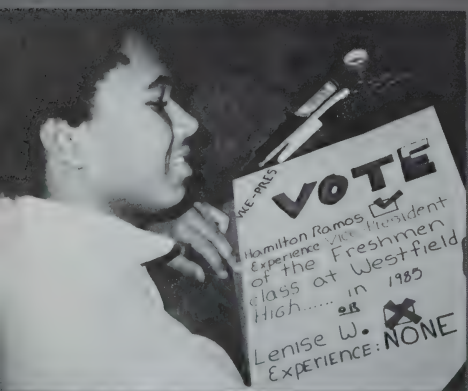 VICE-PRES
VOTE
Hamilton Ramos
Experience Vice President
of the Freshmen
class at Westfield
High...... in 1985
OR
Lenise W.
EXPERIENCE: NONE